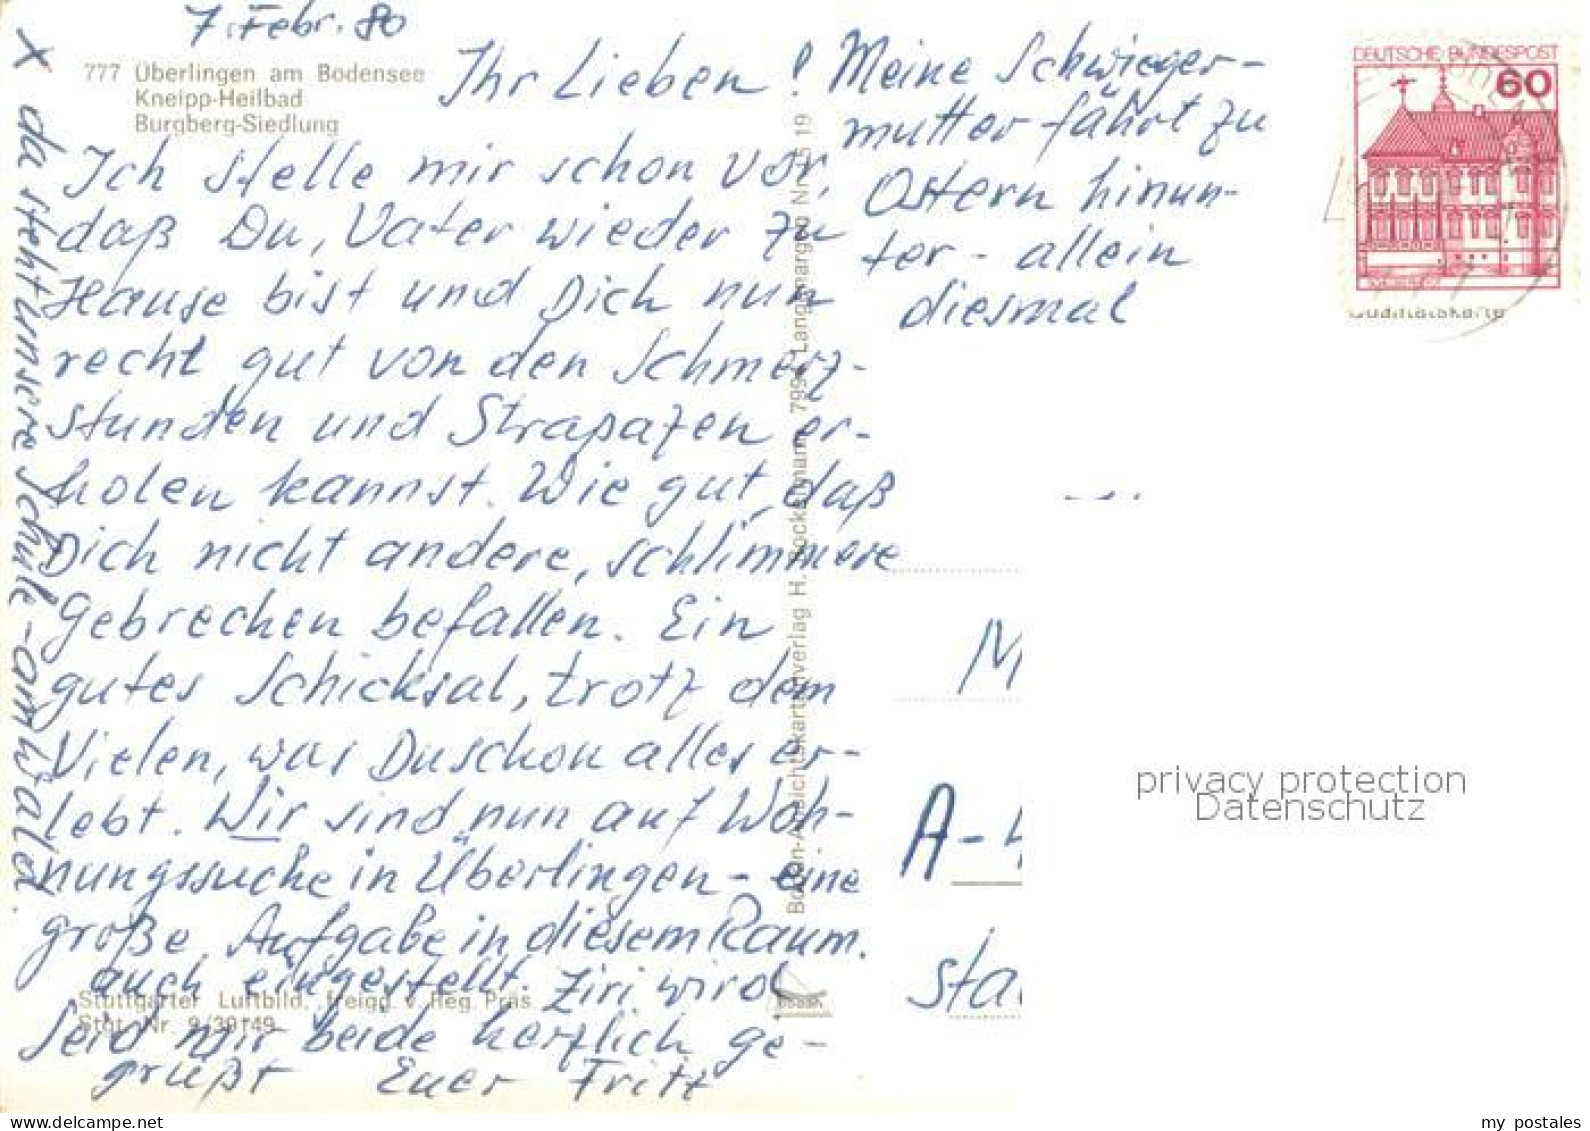 7. Febr. 80
777 Überlingen am Bodensee
Kneipp-Heilbad
Burgberg-Siedlung
Ihr Lieben!
Ich stelle mir schon vor,
daß Du, Vater wieder zu
Hause bist und Dich nun
recht gut von den Schmerz-
stunden und Strapazen er-
holen kannst. Wie gut, daß
Dich nicht andere, schlimmere
Gebrechen befallen. Ein
gutes Schicksal, trotz dem
Vielen, was Du schon alles er-
lebt. Wir sind nun auf Woh-
nungssuche in Überlingen - eine
große Aufgabe in diesem Raum.
auch eingestellt. Ziri wird
Seid mir beide herzlich ge-
grüßt Euer Fritz
Meine Schwieger-
mutter fährt zu
Ostern hinun-
ter - allein
diesmal
x da steht unsere Schule - am Walde.
Stuttgarter Luftbild, freigg. v. Reg. Präs.
Stgt. Nr. 9/39149
Boden-Ansichtskartenverlag H. Bockelmann 7994 Langenargen Nr. 1519
DEUTSCHE BUNDESPOST
60
Qualitätskarte
M
A-4
Sta
privacy protection
Datenschutz
my postales